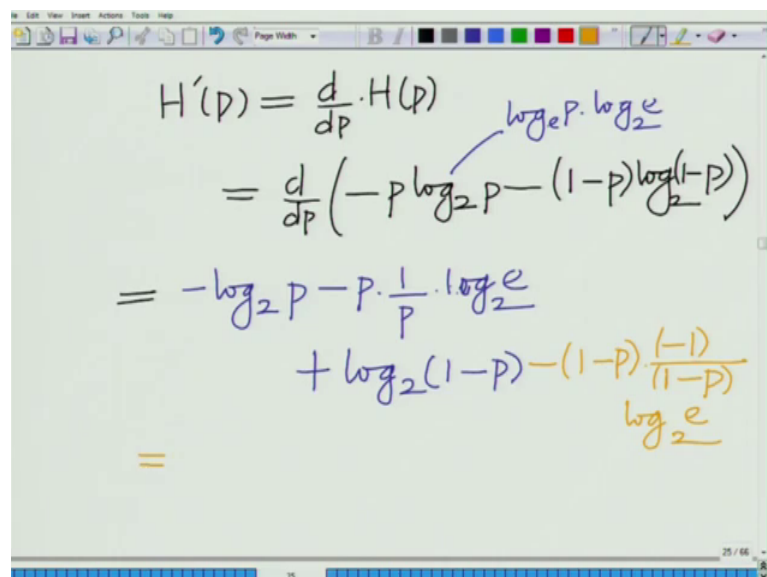 File Edit View Insert Actions Tools Help
Page Width B I
H'(p) = d/dp · H(p)
log_e p · log_2 e
= d/dp (−p log_2 p − (1−p) log_2 (1−p))
= −log_2 p − p · 1/p · log_2 e
+ log_2 (1−p) − (1−p) · (−1)/(1−p)
log_2 e
=
25 / 66
25